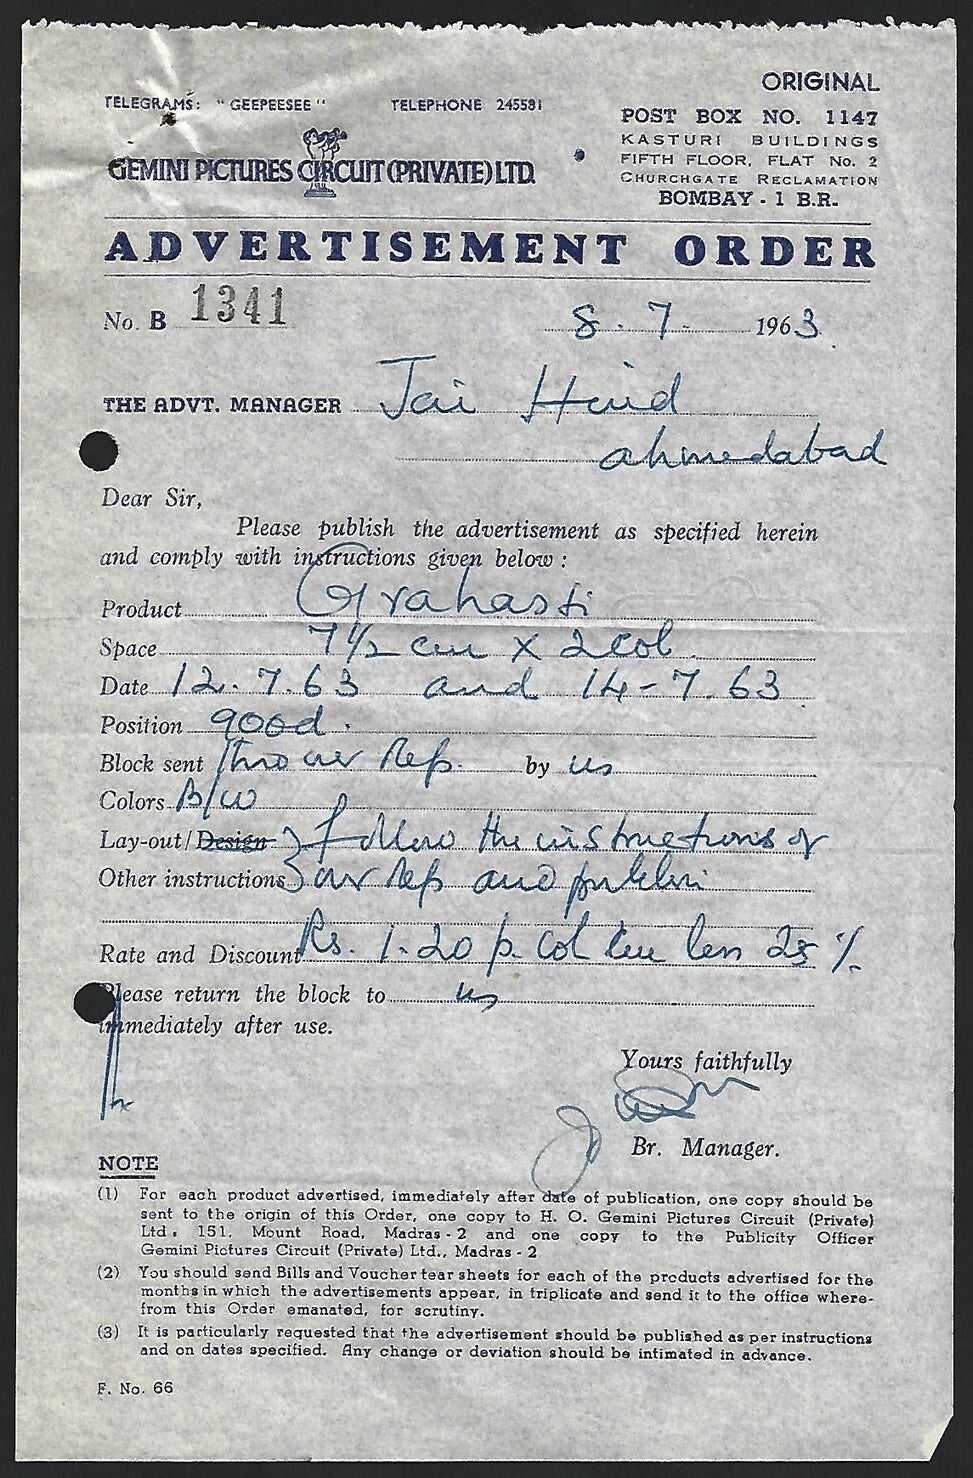 ORIGINAL
TELEGRAMS: "GEEPEESEE" TELEPHONE 245531
POST BOX NO. 1147
KASTURI BUILDINGS
FIFTH FLOOR, FLAT No. 2
CHURCHGATE RECLAMATION
BOMBAY - 1 B.R.
GEMINI PICTURES CIRCUIT (PRIVATE) LTD.
ADVERTISEMENT ORDER
No. B 1341
8. 7. 1963.
THE ADVT. MANAGER Jai Hind
ahmedabad
Dear Sir,
Please publish the advertisement as specified herein
and comply with instructions given below :
Product Grahasti
Space 7½ cm X 2 col.
Date 12.7.63 and 14-7.63
Position good.
Block sent thro our Rep. by us
Colors B/W
Lay-out/Design } follow the instructions of
Other instructions } our Rep and publish
Rate and Discount Rs. 1.20 p. col cm less 25 %
Please return the block to us
immediately after use.
Yours faithfully
Br. Manager.
NOTE
(1) For each product advertised, immediately after date of publication, one copy should be
sent to the origin of this Order, one copy to H. O. Gemini Pictures Circuit (Private)
Ltd. 151, Mount Road, Madras - 2 and one copy to the Publicity Officer
Gemini Pictures Circuit (Private) Ltd., Madras - 2
(2) You should send Bills and Voucher tear sheets for each of the products advertised for the
months in which the advertisements appear, in triplicate and send it to the office where-
from this Order emanated, for scrutiny.
(3) It is particularly requested that the advertisement should be published as per instructions
and on dates specified. Any change or deviation should be intimated in advance.
F. No. 66